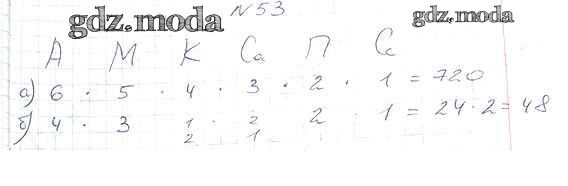 gdz.moda
№53
gdz.moda
А М К Са П Се
а) 6 · 5 · 4 · 3 · 2 · 1 = 720
б) 4 · 3 1 · 2 2 · 1 = 24 · 2 = 48
2 1